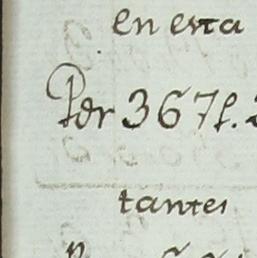 en esta
Per 367l.
tantes